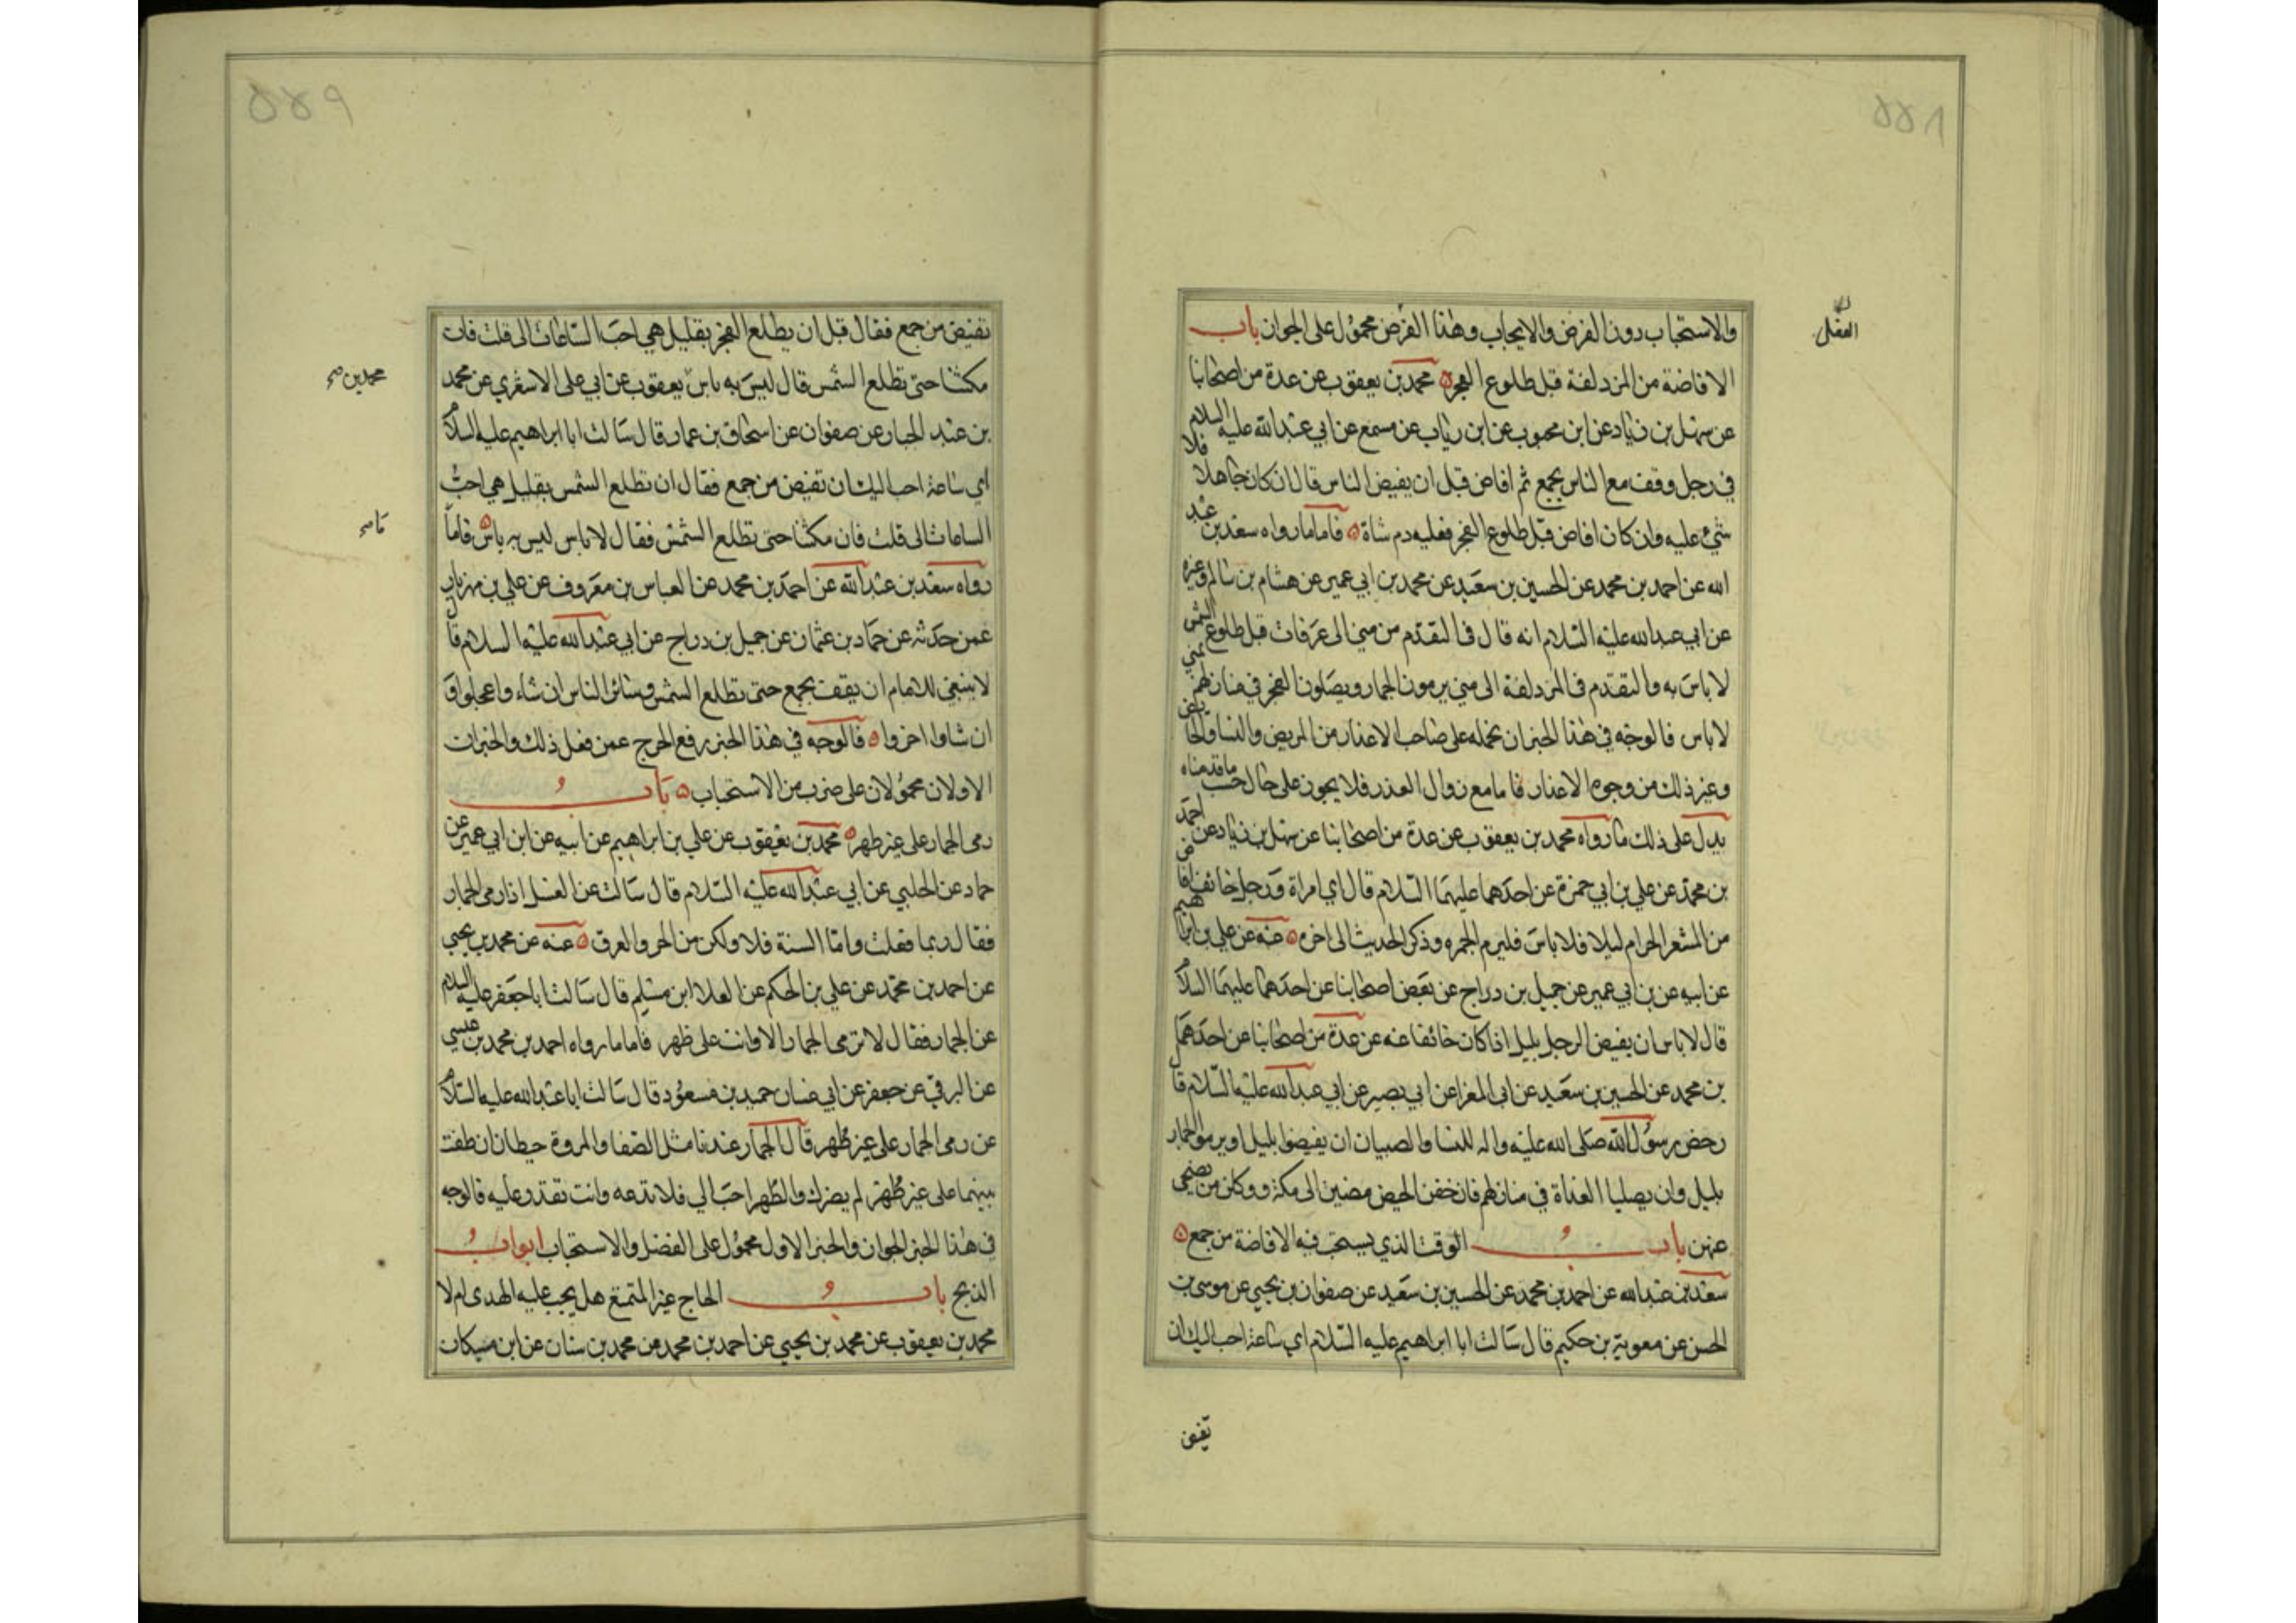 ۵۵۸
الفضل
والاستحباب دون الفرض والايجاب وهذا الفرض محمول على الجواز باب
الافاضة من المزدلفة قبل طلوع الفجر محمد بن يعقوب عن عدة من اصحابنا
عن سهل بن زياد عن ابن محبوب عن ابن رئاب عن مسمع عن ابي عبد الله عليه السلام
في رجل وقف مع الناس بجمع ثم افاض قبل ان يفيض الناس قال ان كان جاهلا فلا
شيء عليه وان كان افاض قبل طلوع الفجر فعليه دم شاة فاما ما رواه سعد بن عبد
الله عن احمد بن محمد عن الحسين بن سعيد عن محمد بن ابي عمير عن هشام بن سالم وغيره
عن ابي عبد الله عليه السلام انه قال في التقدم من منى الى عرفات قبل طلوع الشمس
لا باس به والتقدم في المزدلفة الى منى يرمون الجمار ويصلون الفجر في منازلهم بمنى
لا باس فالوجه في هذا الخبر ان نحمله على صاحب الاعذار من المريض والنسا والخائف
وغير ذلك من وجوه الاعذار فاما مع زوال العذر فلا يجوز على حال حسب ما قدمناه
يدل على ذلك ما رواه محمد بن يعقوب عن عدة من اصحابنا عن سهل بن زياد عن احمد
بن محمد عن علي بن ابي حمزة عن احدهما عليهما السلام قال اي امراة ورجل خائف افاض
من المشعر الحرام ليلا فلا باس فليرم الجمره وذكر الحديث الى اخره عنه عن علي بن ابراهيم
عن ابيه عن بن ابي عمير عن جميل بن دراج عن بعض اصحابنا عن احدهما عليهما السلام
قال لا باس ان يفيض الرجل بليل اذا كان خائفا عنه عن عدة من اصحابنا عن احدهما
بن محمد عن الحسين بن سعيد عن ابي المغرا عن ابي بصير عن ابي عبد الله عليه السلام قال
رخص رسول الله صلى الله عليه واله للنسا والصبيان ان يفيضوا بليل او يرموا الجمار
بليل وان يصليا الغداة في منازلهم فان خفن الحيض مضين الى مكة ووكلن من يضحي
عنهن باب الوقت الذي يستحب فيه الافاضة من جمع
سعد بن عبد الله عن احمد بن محمد عن الحسين بن سعيد عن صفوان بن يحيى عن موسى بن
الحسن عن معوية بن حكيم قال سالت ابا ابراهيم عليه السلام اي ساعة احب اليك ان
تفيض
۵۵۹
تفيض من جمع فقال قبل ان يطلع الفجر بقليل هي احب الساعات الى قلت فان
مكثنا حتى تطلع الشمس قال ليس به باس يعقوب عن ابي على الاشعري عن محمد
محمد بن صح
بن عبد الجبار عن صفوان عن اسحاق بن عمار قال سالت ابا ابراهيم عليه السلام
اي ساعة احب اليك ان تفيض من جمع فقال ان تطلع الشمس بقليل هي احب
الساعات الى قلت فان مكثنا حتى تطلع الشمس فقال لا باس ليس به باس فاما
ما صح
رواه سعد بن عبد الله عن احمد بن محمد عن العباس بن معروف عن علي بن مهزيار
عمن حدثه عن حماد بن عثمان عن جميل بن دراج عن ابي عبد الله عليه السلام قال
لا ينبغي للامام ان يقف بجمع حتى تطلع الشمس وسائر الناس ان شاء واعجلوا و
ان شاوا اخروا فالوجه في هذا الخبر رفع الحرج عمن فعل ذلك والخبران
الاولان محمولان على ضرب من الاستحباب باب
رمى الجمار على غير طهر محمد بن يعقوب عن علي بن ابراهيم عن ابيه عن ابن ابي عمير عن
حماد عن الحلبي عن ابي عبد الله عليه السلام قال سالت عن الغسل اذا رمى الجمار
فقال ربما فعلت واما السنة فلا ولكن من الحر والعرق عنه عن محمد بن يحيى
عن احمد بن محمد عن علي بن الحكم عن العلا ابن مسلم قال سالت ابا جعفر عليه السلام
عن الجمار فقال لا ترمى الجمار الا وانت على طهر فاما ما رواه احمد بن محمد بن عيسى
عن البرقي عن جعفر عن ابي غسان حميد بن مسعود قال سالت ابا عبد الله عليه السلام
عن رمى الجمار على غير طهر قال الجمار عندنا مثل الصفا والمروة حيطان ان طفت
بينهما على غير طهر لم يضرك والطهر احب الي فلا تدعه وانت تقدر عليه فالوجه
في هذا الخبر الجواز والخبر الاول محمول على الفضل والاستحباب ابواب
الذبح باب الحاج غير المتمتع هل يجب عليه الهدى ام لا
محمد بن يعقوب عن محمد بن يحيى عن احمد بن محمد عن محمد بن سنان عن ابن مسكان